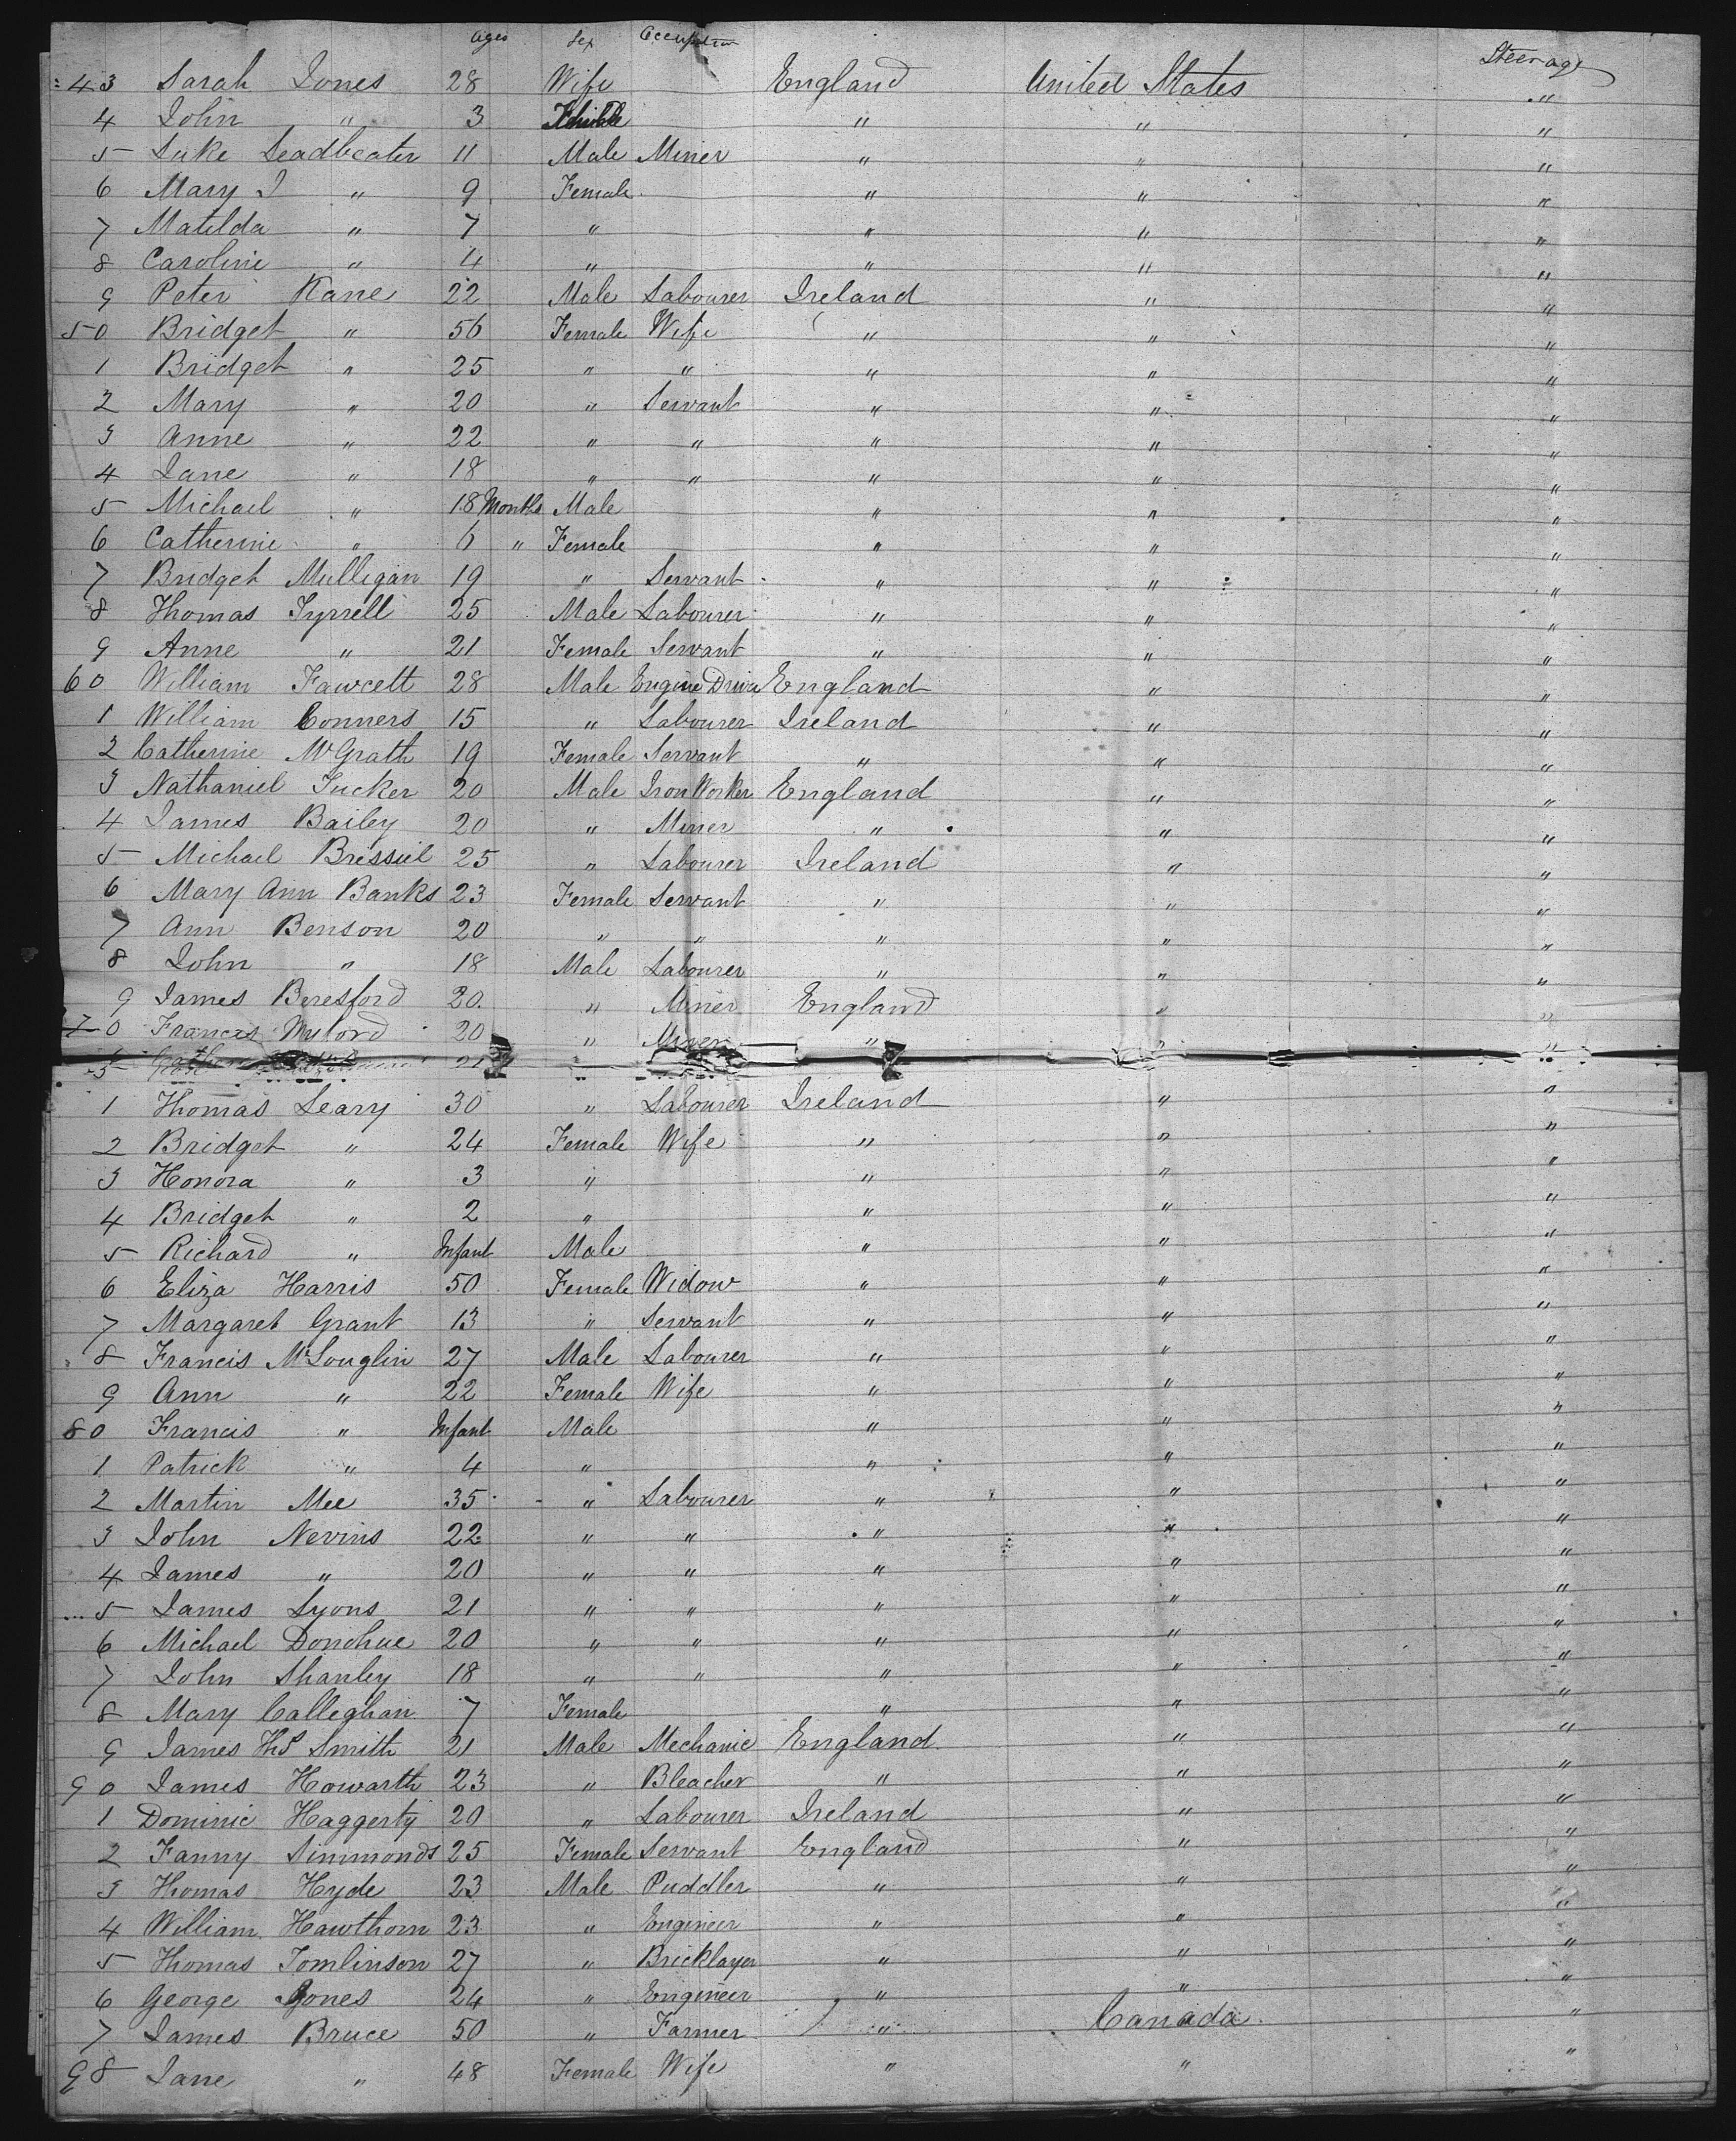 Ages Sex Occupation Steerage
43 Sarah Jones 28 Wife England United States "
4 John " 3 " " "
5 Luke Leadbeater 11 Male Miner " " "
6 Mary J " 9 Female " " "
7 Matilda " 7 " " " "
8 Caroline " 4 " " " "
9 Peter Kane 22 Male Labourer Ireland " "
50 Bridget " 56 Female Wife " " "
1 Bridget " 25 " " " " "
2 Mary " 20 " Servant " " "
3 Anne " 22 " " " " "
4 Jane " 18 " " " " "
5 Michael " 18 Months Male " " "
6 Catherine " 6 " Female " " "
7 Bridget Mulligan 19 " Servant " " "
8 Thomas Tyrrell 25 Male Labourer " " "
9 Anne " 21 Female Servant " " "
60 William Fawcett 28 Male Engine Driver England " "
1 William Conners 15 " Labourer Ireland " "
2 Catherine McGrath 19 Female Servant " " "
3 Nathaniel Tucker 20 Male Iron Worker England " "
4 James Bailey 20 " Miner " " "
5 Michael 25 " Labourer Ireland " "
6 Mary Ann Banks 23 Female Servant " " "
7 Ann Benson 20 " " " " "
8 John " 18 Male Labourer " " "
9 James Beresford 20 " Miner England " "
70 Frances 20 " Miner " " "
1 Thomas Leary 30 " Labourer Ireland " "
2 Bridget " 24 Female Wife " " "
3 Honora " 3 " " " "
4 Bridget " 2 " " " "
5 Richard " Infant Male " " "
6 Eliza Harris 50 Female Widow " " "
7 Margaret Grant 13 " Servant " " "
8 Francis McLouglin 27 Male Labourer " " "
9 Ann " 22 Female Wife " " "
80 Francis " Infant Male " " "
1 Patrick " 4 " " " "
2 Martin Mee 35 " Labourer " " "
3 John Nevins 22 " " " " "
4 James " 20 " " " " "
5 James Lyons 21 " " " " "
6 Michael Donohue 20 " " " " "
7 John Shanley 18 " " " " "
8 Mary Calleghan 7 Female " " "
9 James Ths Smith 21 Male Mechanic England " "
90 James Howarth 23 " Bleacher " " "
1 Dominic Haggerty 20 " Labourer Ireland " "
2 Fanny Simmonds 25 Female Servant England " "
3 Thomas Hyde 23 Male Puddler " " "
4 William Hawthorn 23 " Engineer " " "
5 Thomas Tomlinson 27 " Bricklayer " " "
6 George Jones 24 " Engineer " " "
7 James Bruce 50 " Farmer " Canada "
98 Jane " 48 Female Wife " " "